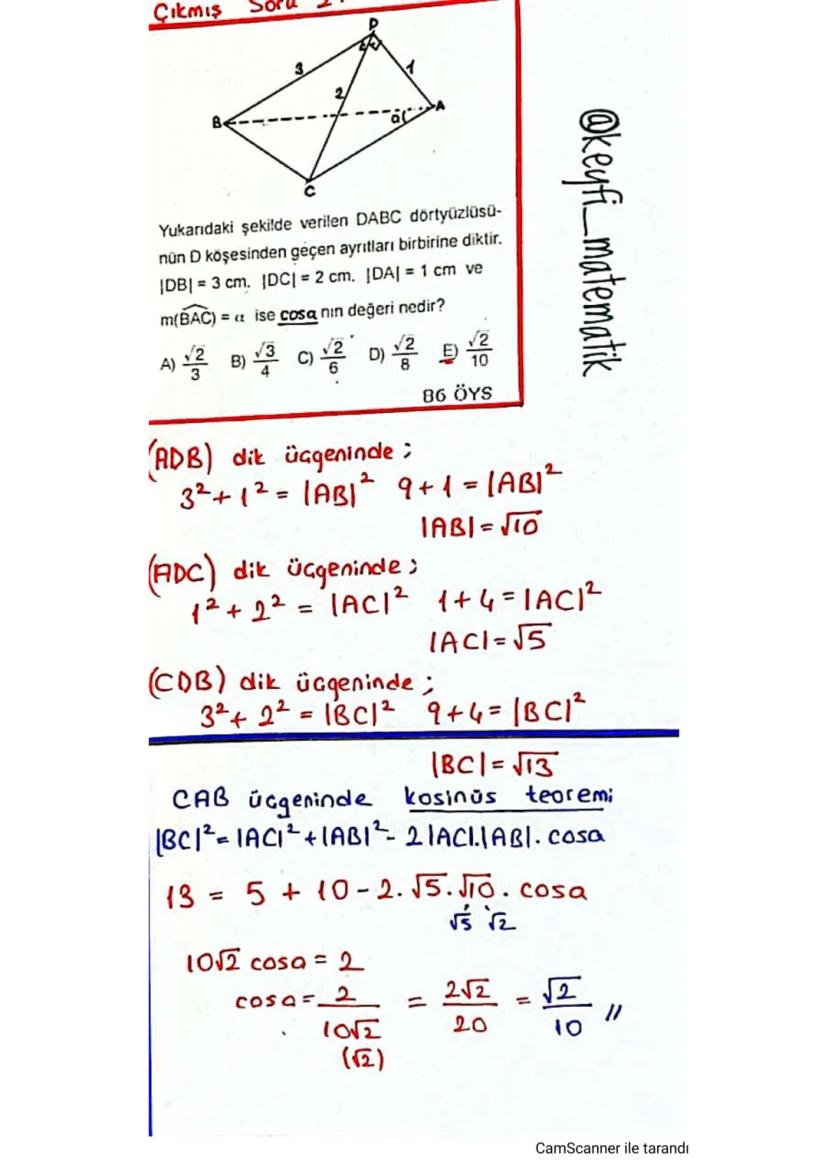 Çıkmış Soru
D
3
1
2
B
A
α
C
Yukarıdaki şekilde verilen DABC dörtyüzlüsü-
nün D köşesinden geçen ayrıtları birbirine diktir.
|DB| = 3 cm. |DC| = 2 cm. |DA| = 1 cm ve
m(BAC) = α ise cosα nın değeri nedir?
A) √2/3 B) √3/4 C) √2/6 D) √2/8 E) √2/10
86 ÖYS
@keyfi_matematik
(ADB) dik üçgeninde ;
3² + 1² = |AB|² 9+1 = |AB|²
|AB| = √10
(ADC) dik üçgeninde ;
1² + 2² = |AC|² 1+4 = |AC|²
|AC| = √5
(CDB) dik üçgeninde ;
3² + 2² = |BC|² 9+4 = |BC|²
|BC| = √13
CAB üçgeninde kosinüs teoremi
|BC|² = |AC|² + |AB|² - 2|AC|.|AB|. cosα
13 = 5 + 10 - 2. √5. √10. cosα
√5 √2
10√2 cosα = 2
cosα = 2/10√2 = 2√2/20 = √2/10 //
(√2)
CamScanner ile tarandı